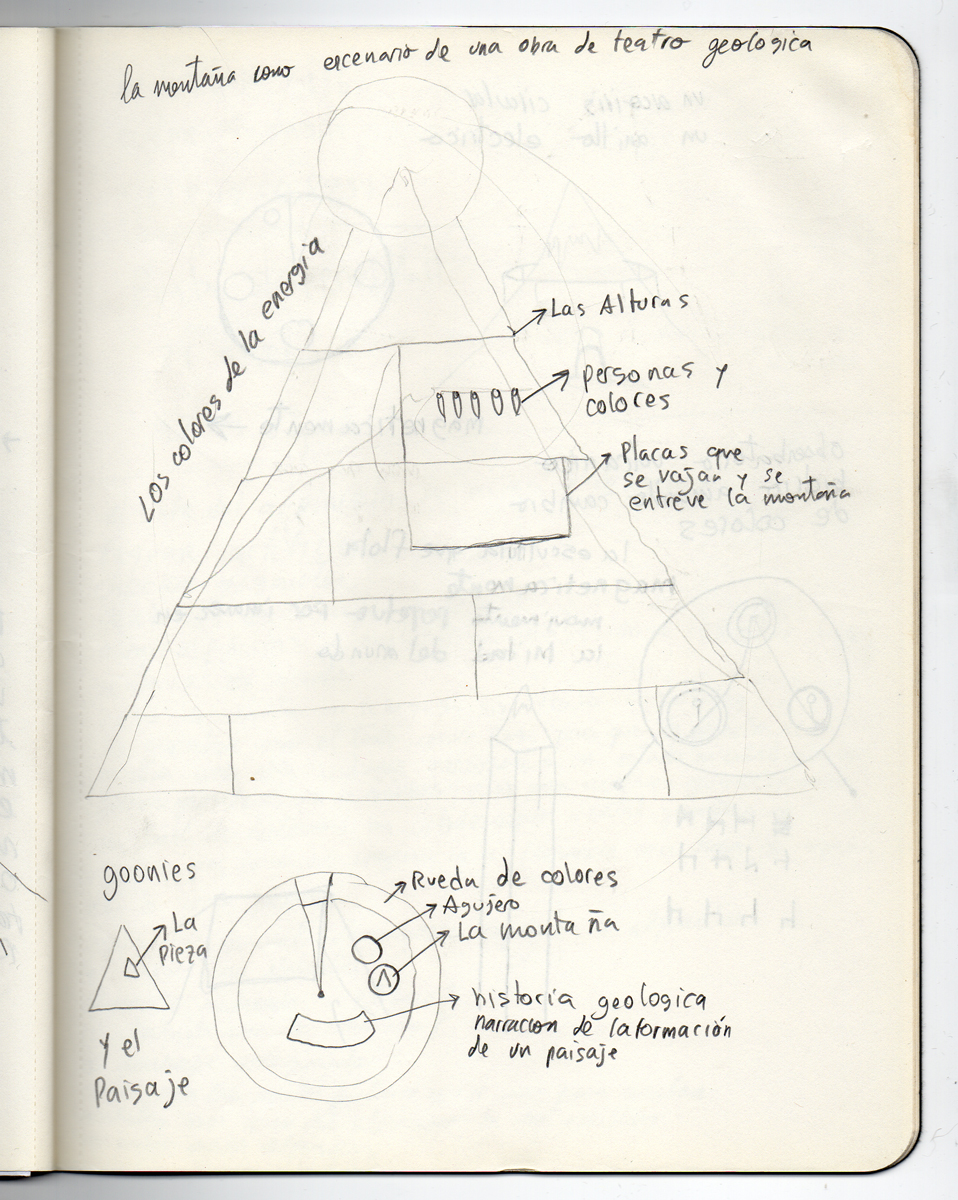 la montaña como escenario de una obra de teatro geologica
Los colores de la energia
Las Alturas
personas y
colores
Placas que
se vajan y se
entreve la montaña
goonies
La
pieza
y el
Paisaje
Rueda de colores
Agujero
La montaña
historia geologica
narracion de la formación
de un paisaje